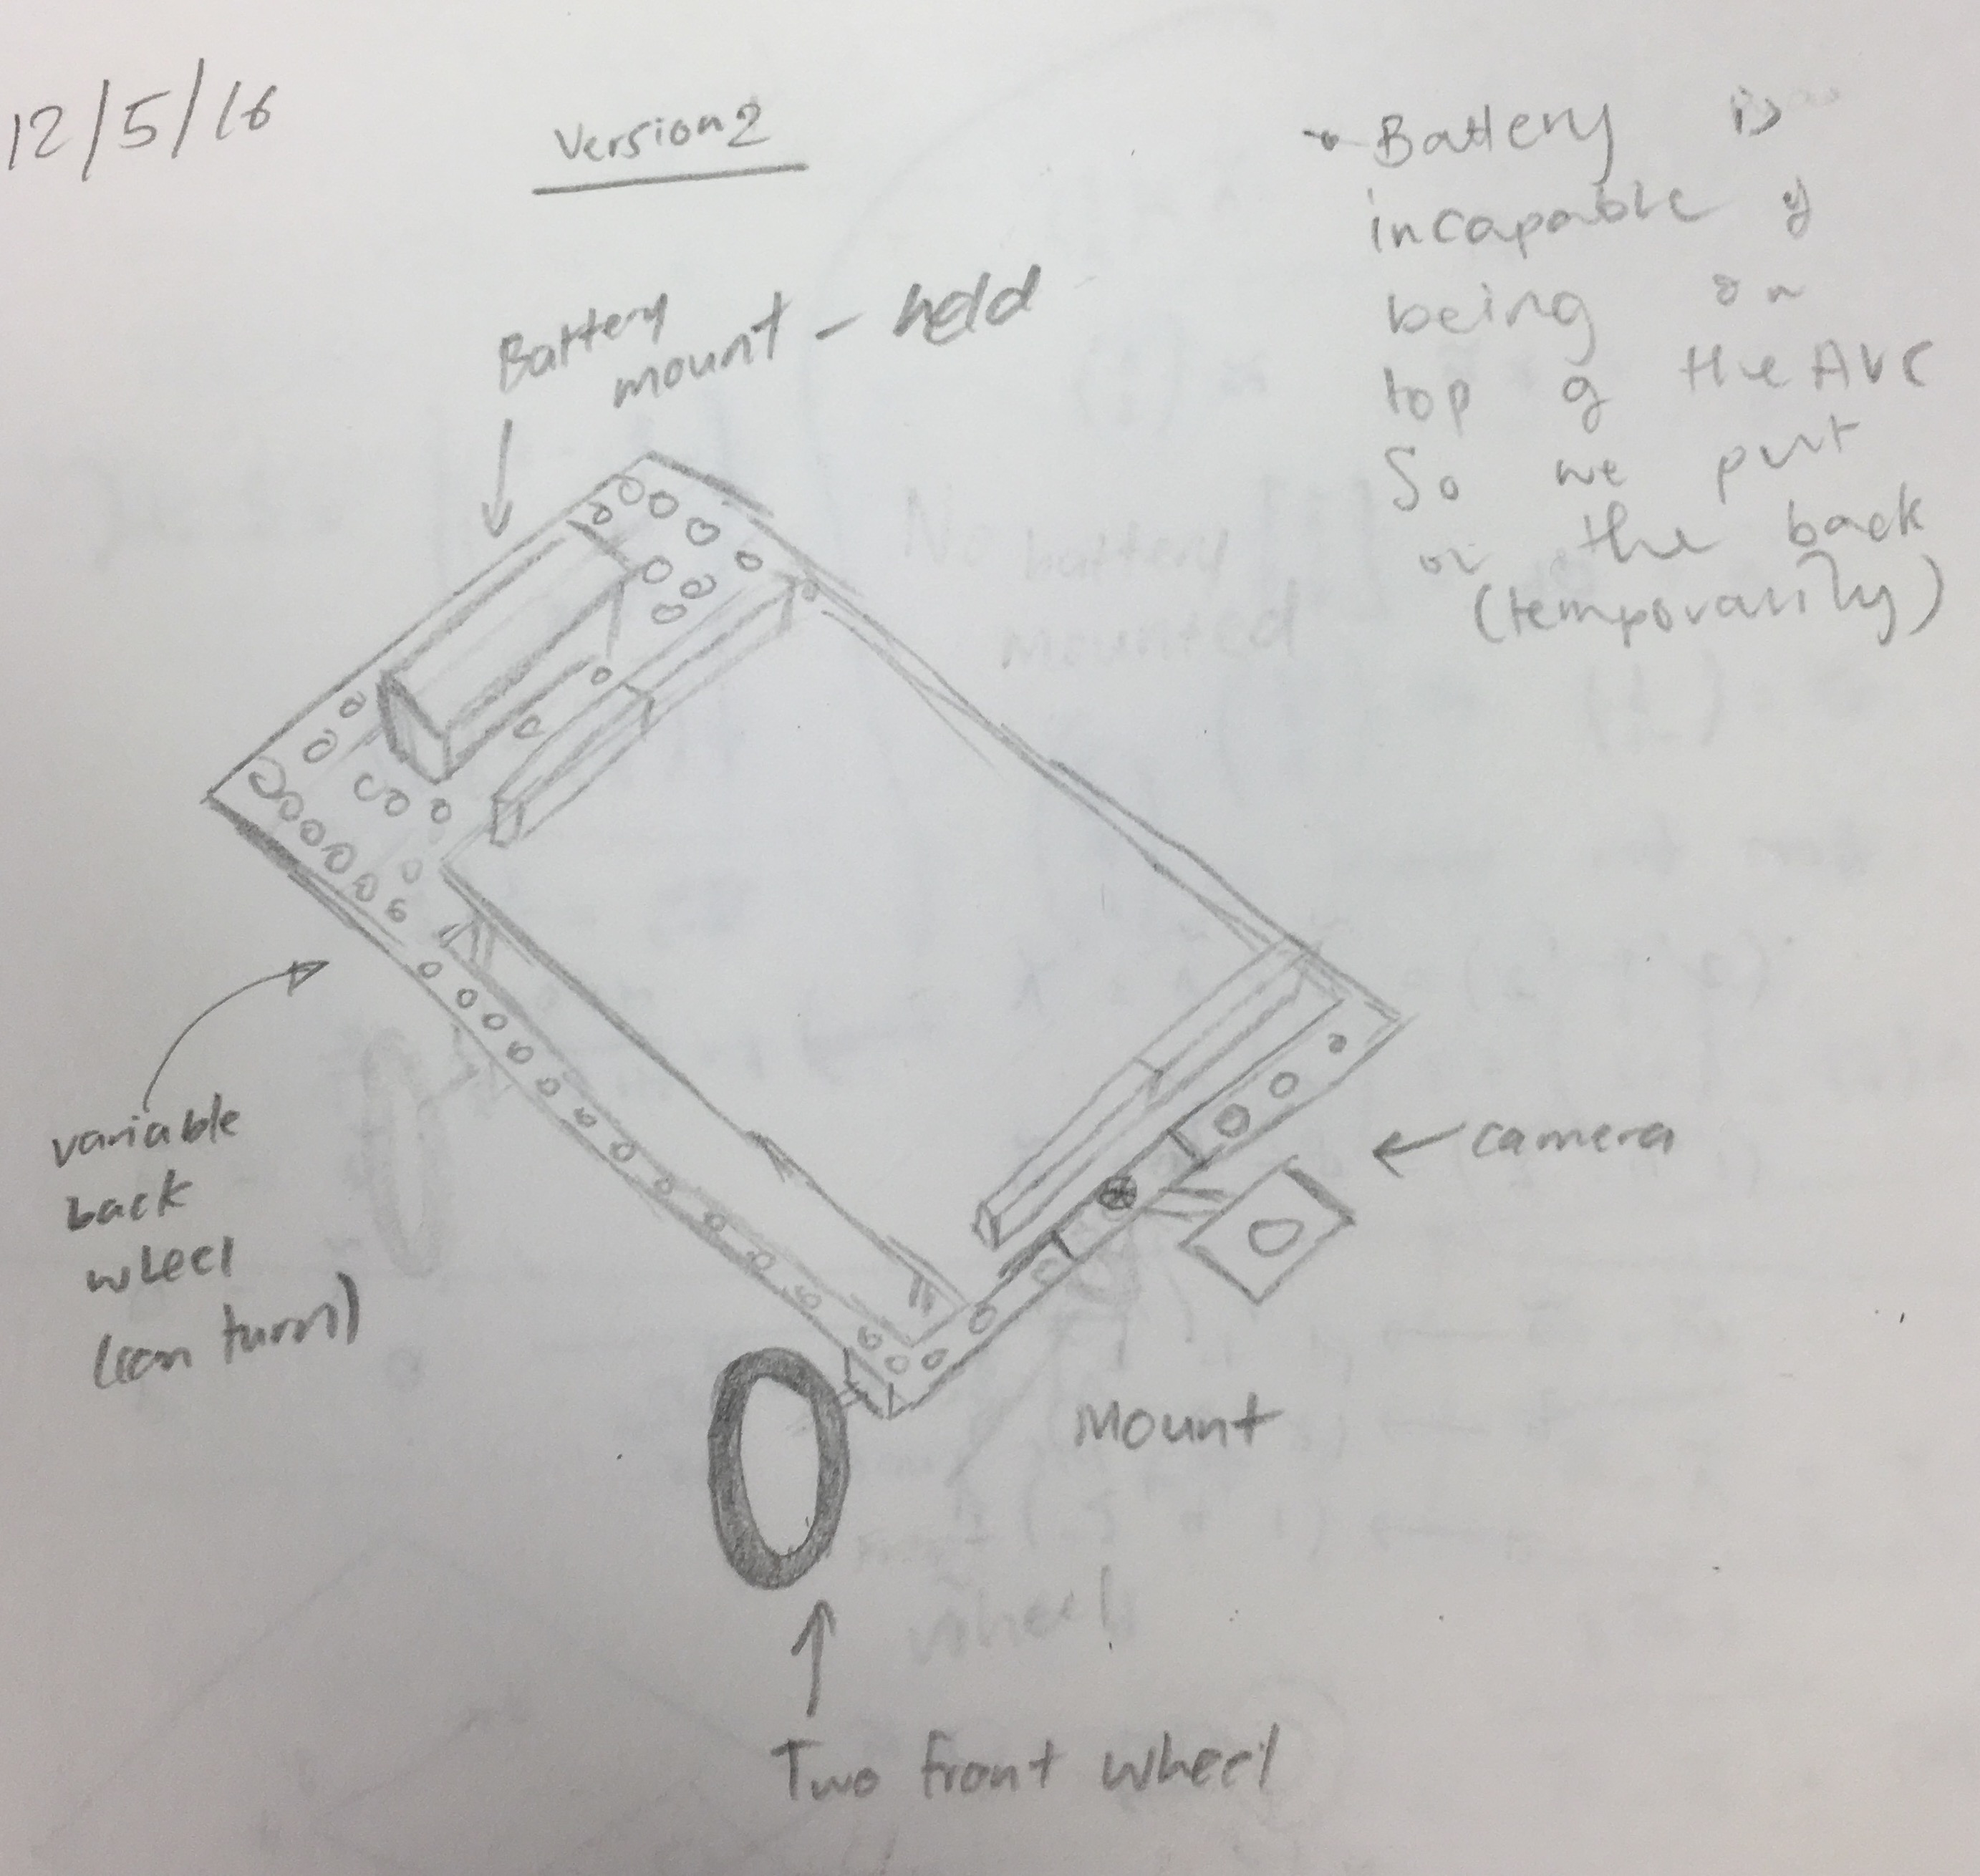 12/5/16
Version 2
Battery is
incapable of
being on
top of the AVC
So we put
on the back
(temporarily)
Battery
mount - held
No
battery
mounted
variable
back
wheel
(can turn)
camera
Mount
wheel
Two front wheel